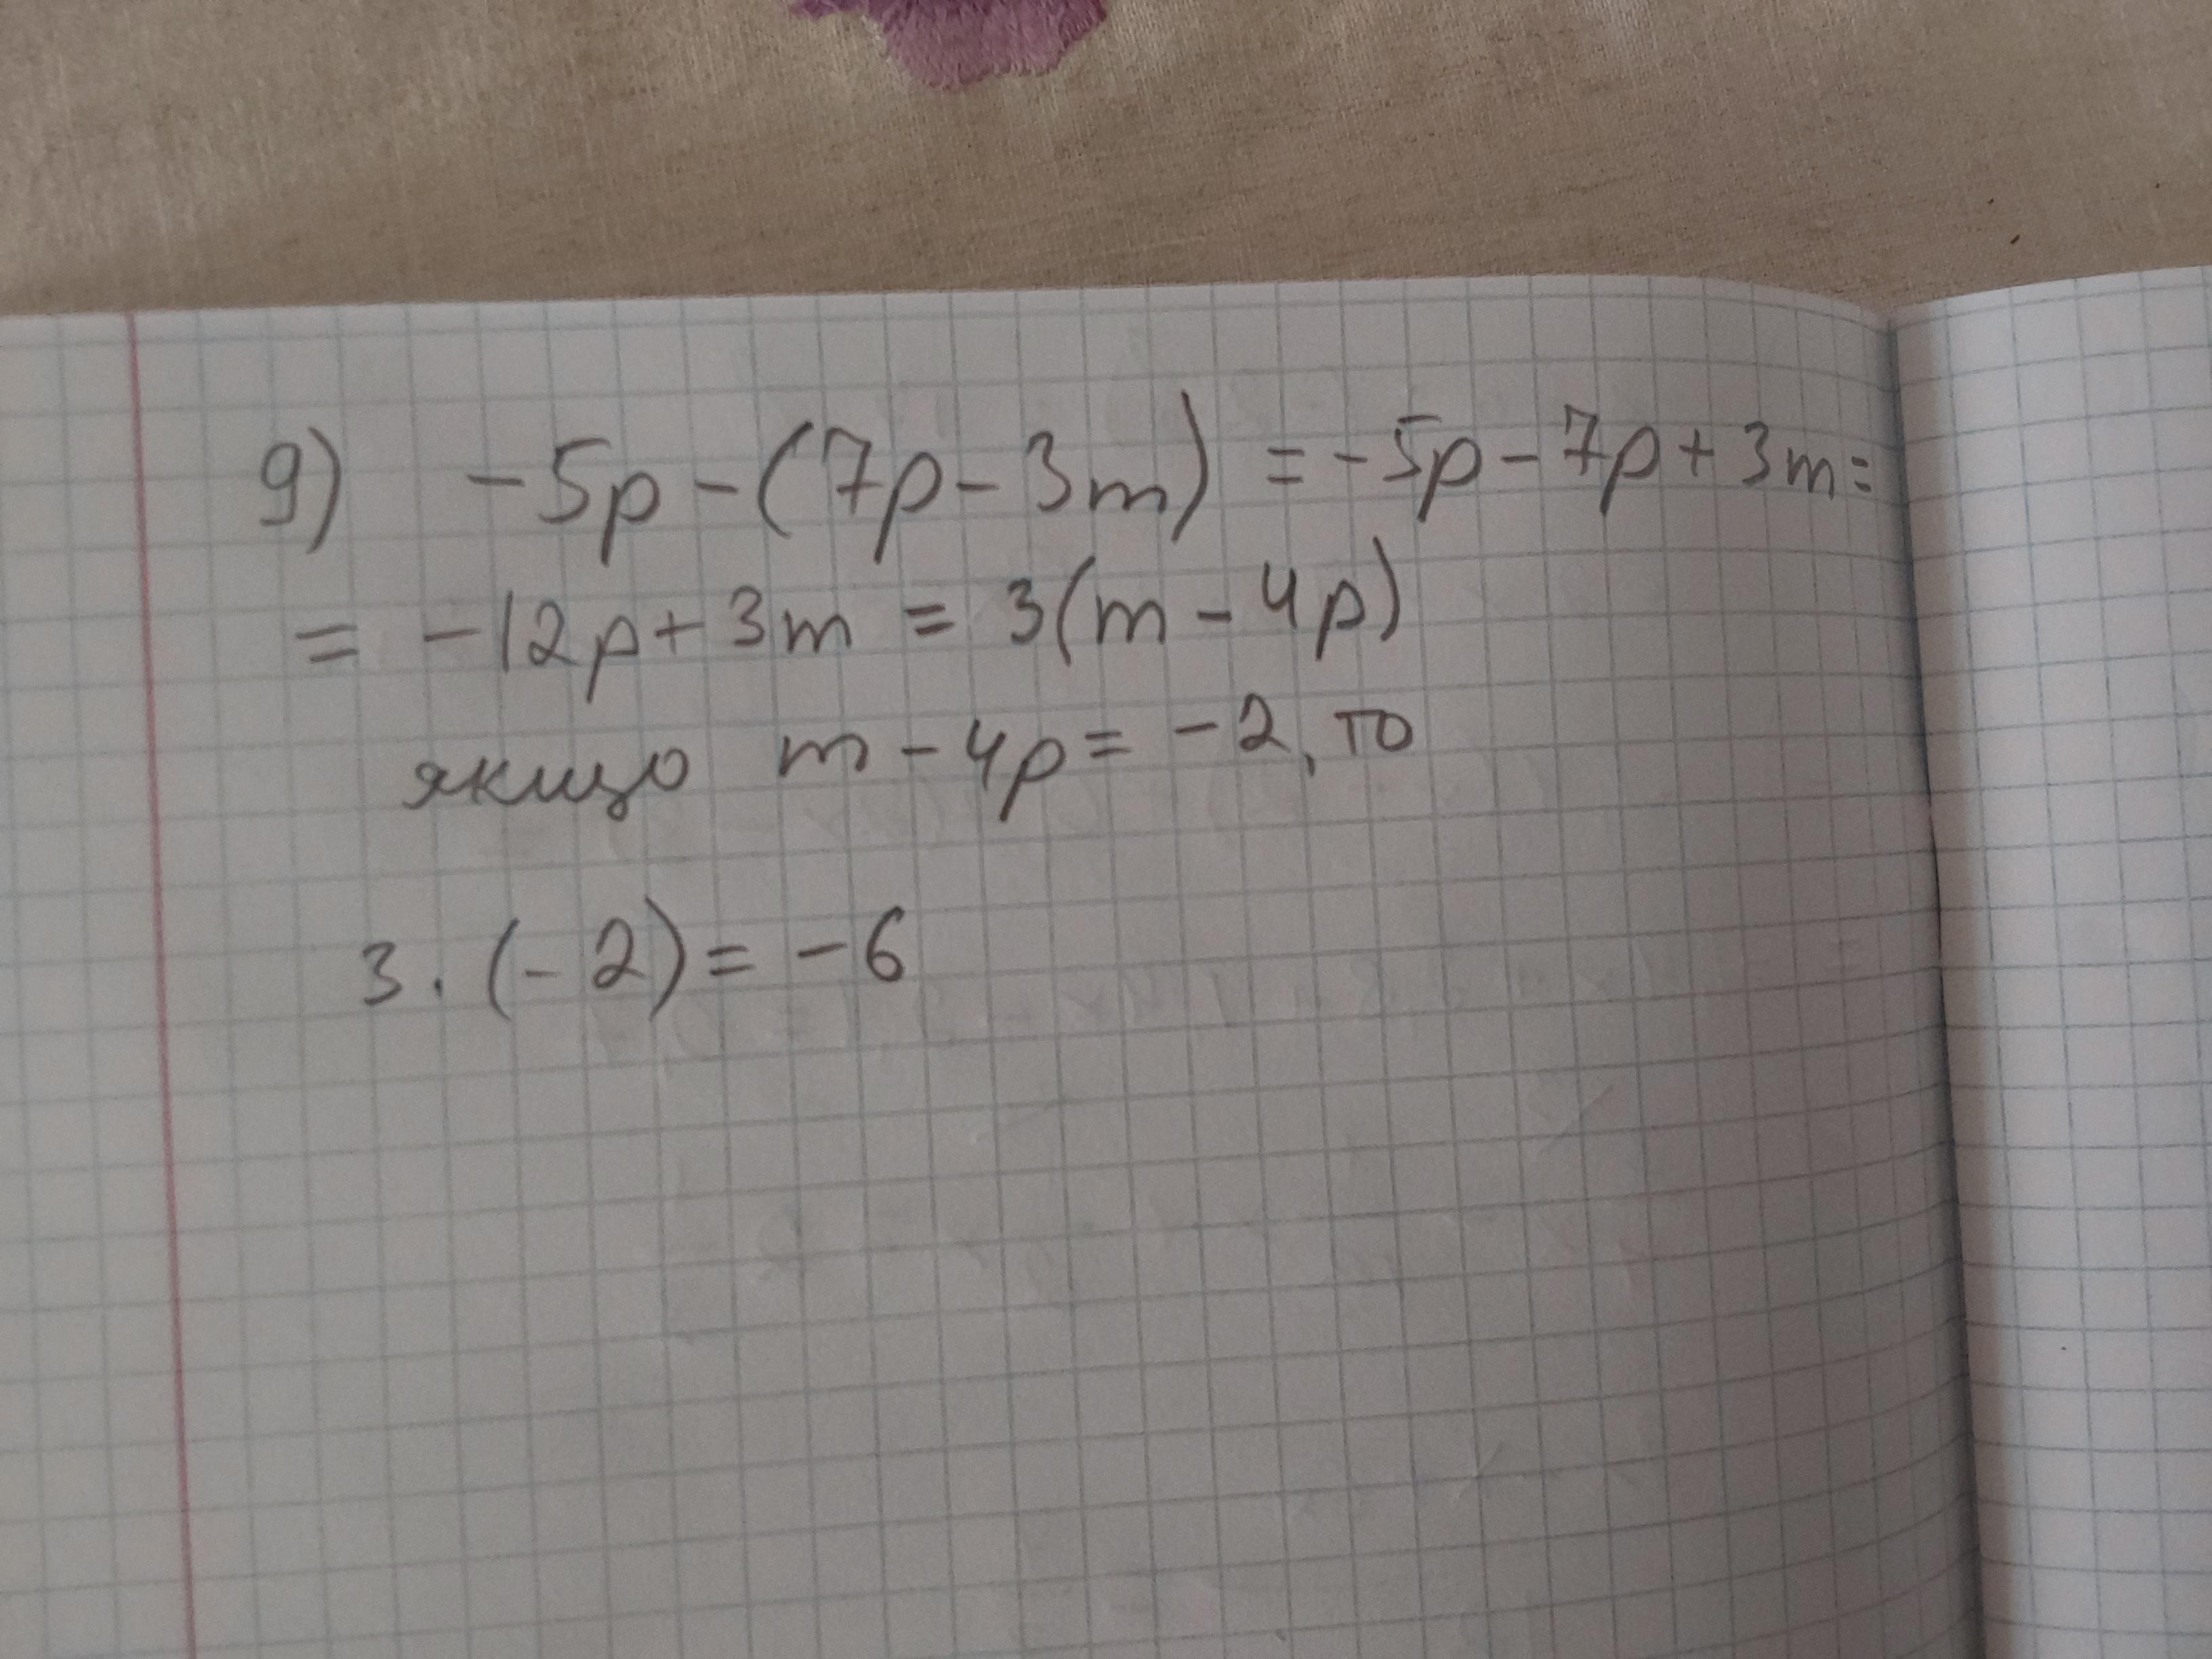 9) -5p-(7p-3m) = -5p-7p+3m=
= -12p+3m = 3(m-4p)
якщо m-4p=-2, то
3·(-2)=-6